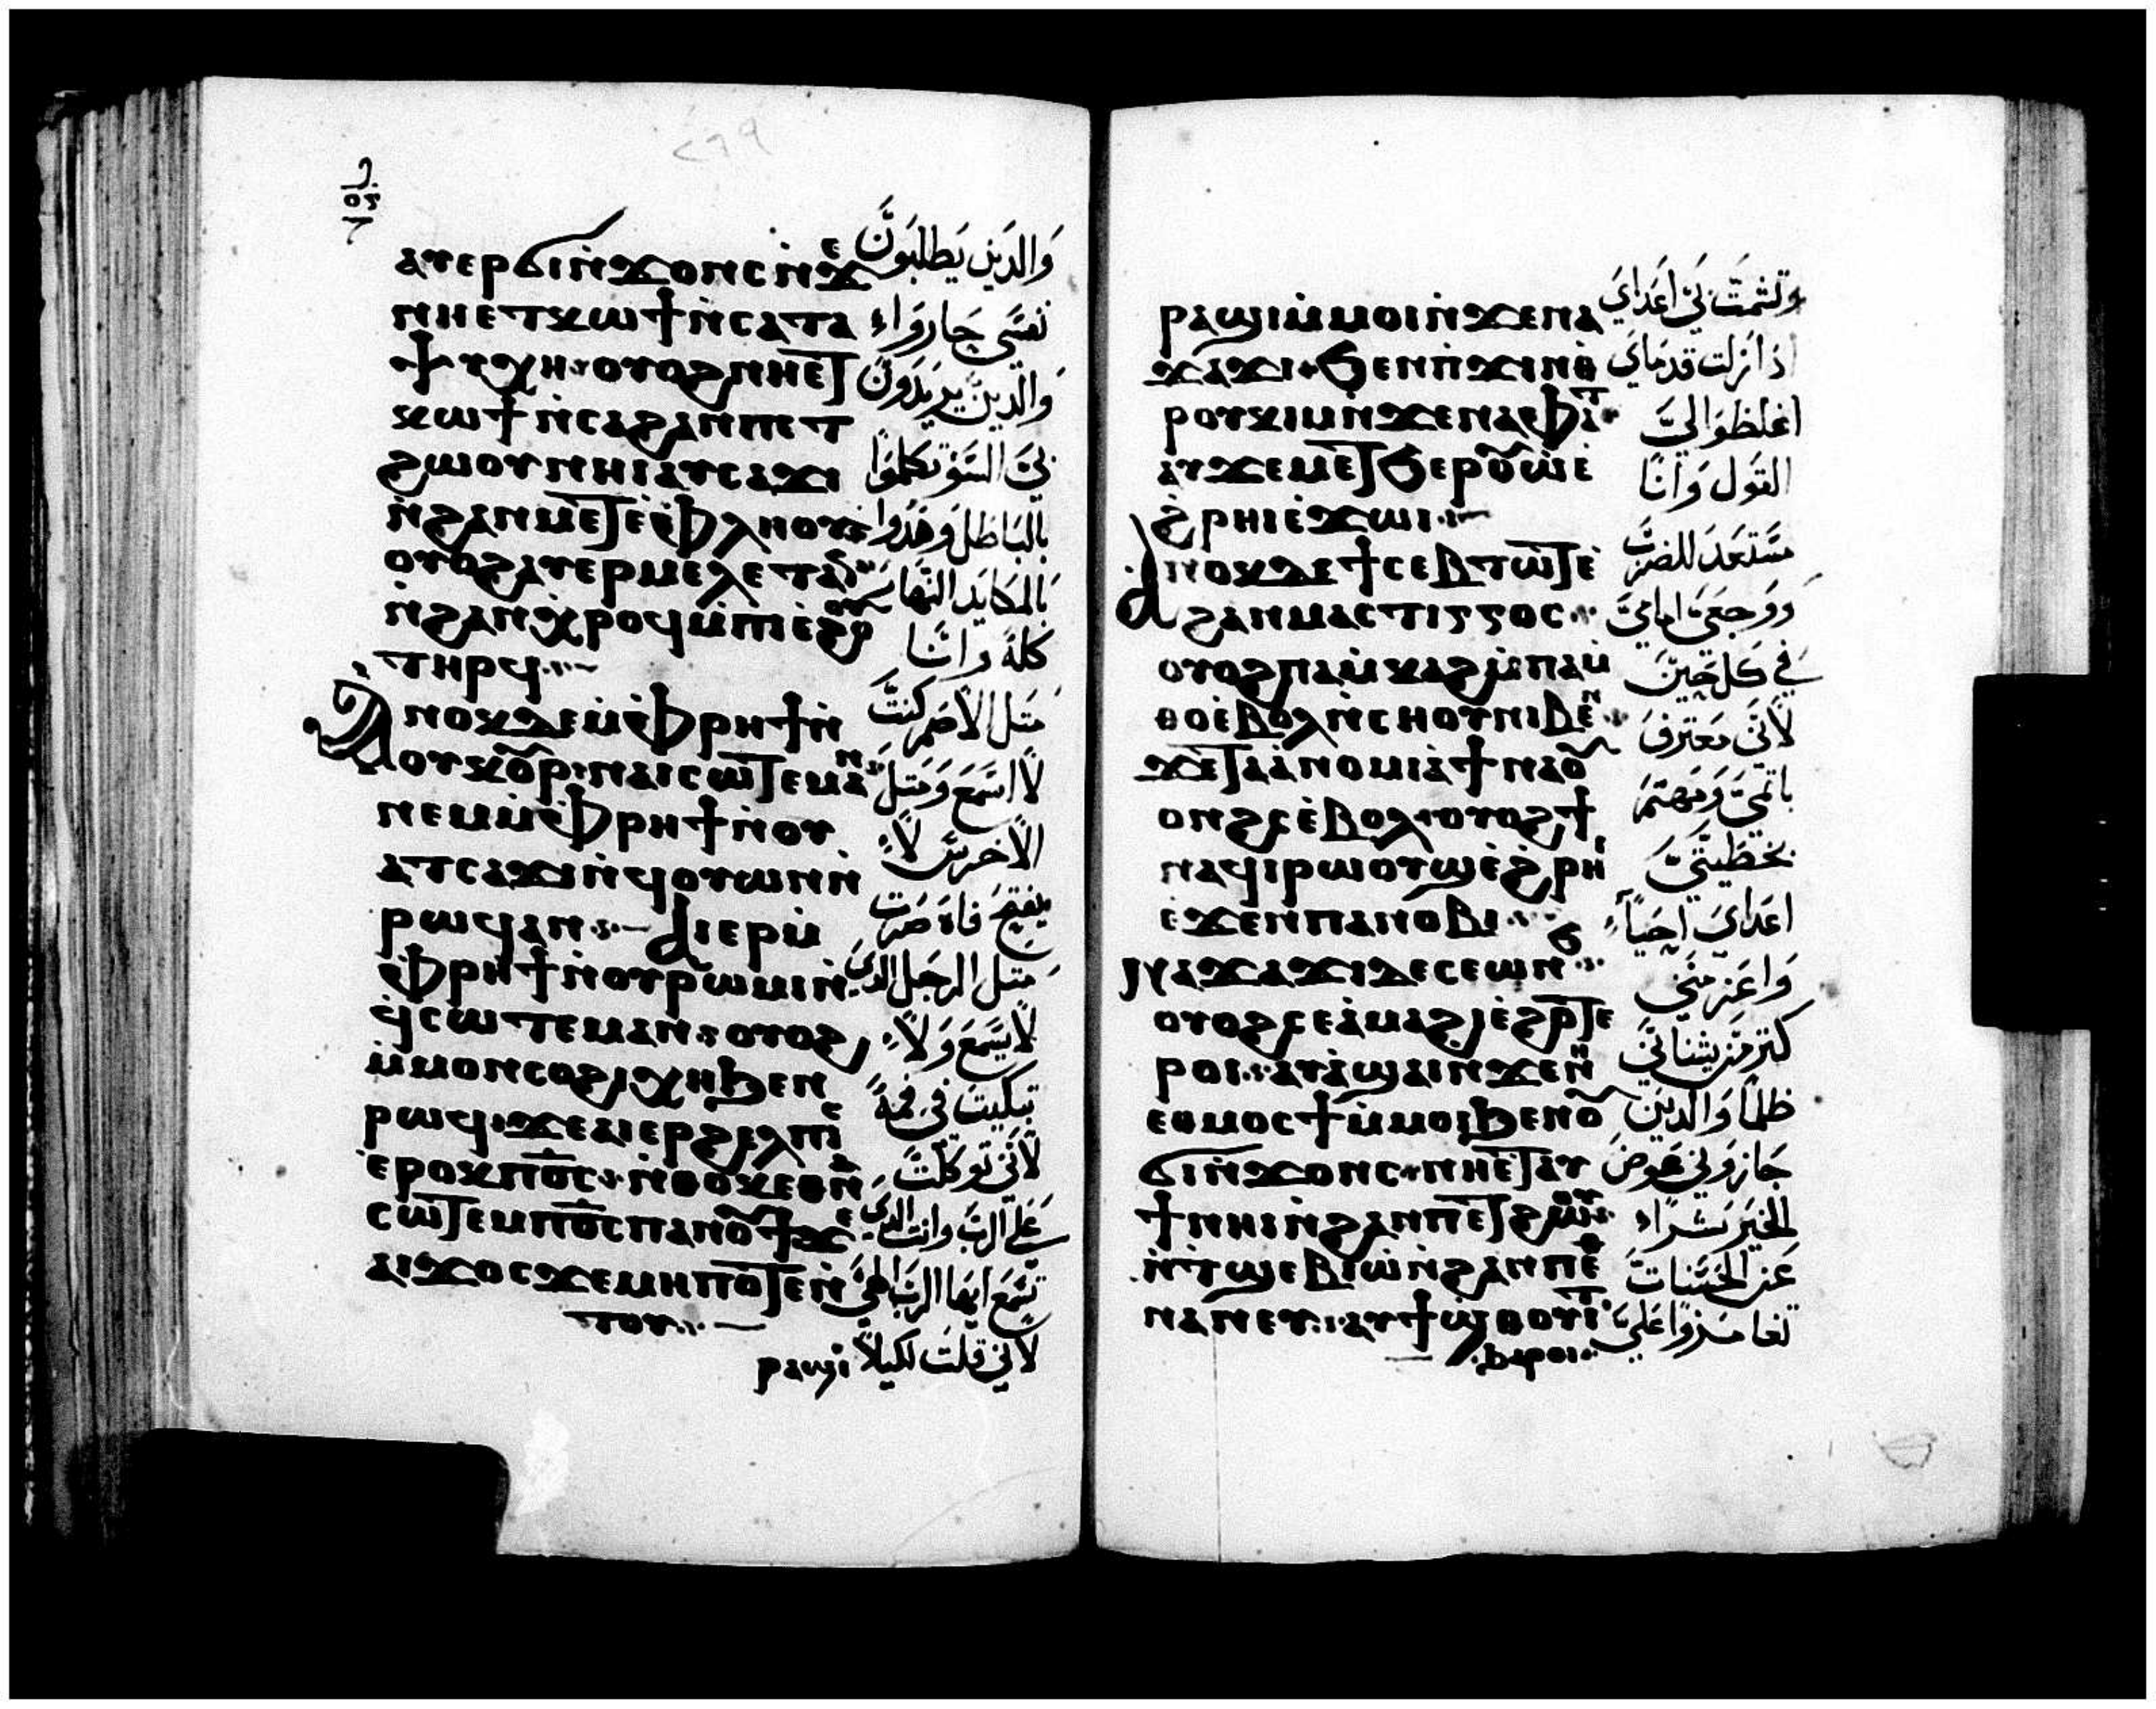 ⲁⲩⲉⲣϭⲓⲛ̀ϫⲟⲛⲥⲛ̀ϫⲉ
ⲛⲏⲉⲧⲕⲱϯⲛ̀ⲥⲁⲧⲁ
ⲯⲩⲭⲏ ⲟⲩⲟϩⲛⲏⲉⲧ
ⲕⲱϯⲛ̀ⲥⲁϩⲁⲛⲡⲉⲧ
ϩⲱⲟⲩⲛⲏⲓⲁⲩⲥⲁϫⲓ
ⲛ̀ϩⲁⲛⲙⲉⲧⲉ̀ⲫⲗⲏⲟⲩ
ⲟⲩⲟϩⲁⲩⲉⲣⲙⲉⲗⲉⲧⲁⲛ
ⲛ̀ϩⲁⲛⲭⲣⲟϥⲙ̀ⲡⲓⲉ̀ϩⲟⲟⲩ
ⲧⲏⲣϥ
ⲁⲛⲟⲕⲇⲉⲙ̀ⲫⲣⲏϯⲛ̀
ⲟⲩⲕⲟⲩⲣ ⲛⲁⲓⲥⲱⲧⲉⲙⲁⲛ
ⲛⲉⲙⲙ̀ⲫⲣⲏϯⲛ̀ⲟⲩ
ⲁⲧⲥⲁϫⲓⲛ̀ϥⲟⲩⲱⲛⲛ̀
ⲣⲱϥⲁⲛ ⲁⲓⲉⲣⲙ̀
ⲫⲣⲏϯⲛ̀ⲟⲩⲣⲱⲙⲓⲛ̀
ϥⲥⲱⲧⲉⲙⲁⲛ ⲟⲩⲟϩ
ⲙ̀ⲙⲟⲛⲥⲟϩⲓⲭⲏϧⲉⲛ
ⲣⲱϥ ϫⲉⲁⲓⲉⲣϩⲉⲗⲡⲓⲥ
ⲉ̀ⲣⲟⲕⲡⲟ̅ⲥ̅ ⲛ̀ⲑⲟⲕⲉⲑⲛⲁ
ⲥⲱⲧⲉⲙⲡⲟ̅ⲥ̅ⲡⲁⲛⲟⲩϯϫⲉ
ⲁⲓϫⲟⲥϫⲉⲙⲏⲡⲟⲧⲉⲛ̀
ⲧⲟⲩ
ⲣⲁϣⲓ
وَالدَين يَطلبَون
نفسَي جَاروَاء
وَالدين يريدَون
لي السَو تكلموَا
بالبَاطل وهَدوا
بالمكايد النهَار
كلهَ وانَا
متل الاصَم كنتَ
لا اسَمعَ وَمتل
الاخرسَ لا
يفتح فاه صَرت
متل الرجَل الدي
لا يسَمعَ وَلا
تبكيتَ في فمهَ
لاني توكلتَ
علي الربَ وانت الدي
تسَمعَ ايهَا الربَ الهي
لاني قلتَ لكيلا
ⲣⲁϣⲓⲙ̀ⲙⲟⲓⲛ̀ϫⲉⲛⲁ
ϫⲁϫⲓ ϧⲉⲛⲡ̀ϫⲓⲛⲑ
ⲣⲟⲩⲕⲓⲙⲛ̀ϫⲉⲛⲁϭⲁⲗⲁⲩϫ
ⲁⲩϫⲉⲙⲉⲧϧⲉⲣⲟⲩⲱⲉ̀
ϩ̀ⲣⲏⲓⲉ̀ϫⲱⲓ
ⲁⲛⲟⲕⲇⲉϯⲥⲉⲃⲧⲱⲧⲉ̀
ϩⲁⲛⲙⲁⲥⲧⲓⲅⲅⲟⲥ
ⲟⲩⲟϩⲡⲁⲙ̀ⲕⲁϩⲙ̀ⲡⲁⲙ̀
ⲑⲟⲉ̀ⲃⲟⲗⲛ̀ⲥⲏⲟⲩⲛⲓⲃⲉⲛ
ϫⲉⲧⲁⲁⲛⲟⲙⲓⲁ̀ϯⲛⲁⲟⲩ
ⲟⲛϩⲥⲉ̀ⲃⲟⲗ ⲟⲩⲟϩϯ
ⲛⲁϥⲓⲣⲱⲟⲩϣⲉ̀ϩ̀ⲣⲏⲓ
ⲉ̀ϫⲉⲛⲡⲁⲛⲟⲃⲓ
ⲛⲁϫⲁϫⲓⲇⲉⲥⲉⲱⲛϧ
ⲟⲩⲟϩⲥⲉⲁ̀ⲙⲁϩⲓⲉ̀ϩⲟⲧⲉ
ⲣⲟⲓ ⲁⲩⲁ̀ϣⲁⲓⲛ̀ϫⲉⲛⲏ
ⲉⲑⲙⲟⲥϯⲙ̀ⲙⲟⲓϧⲉⲛⲟⲩ
ϭⲓⲛ̀ϫⲟⲛⲥ ⲛⲏⲉⲧⲁⲩ
ϯⲛⲏⲓⲛ̀ϩⲁⲛⲡⲉⲧϩⲱⲟⲩ
ⲛ̀ⲧϣⲉⲃⲓⲱⲛ̀ϩⲁⲛⲡⲉⲑ
ⲛⲁⲛⲉⲩ ⲁⲩϯϣⲑⲟⲩⲓⲧ
ϧⲁⲣⲟⲓ
وتشمتَ بي اعَدايَ
اذا زلت قدمَاي
اغلظوَا اليَ
القَول وَانَا
مسَتعَد للضربَ
ووجعَي امامي
في كل حينَ
لاني معَترف
باتميَ وَمهتم
بخطيتيَ
اعَدايَ احيَا
وَاعَز منَي
كتر من يشناني
ظلمَا وَالدينَ
جَازوَني عَوضَ
الخيرَ شرَاء
عَن الحسَنات
تغامَزوَا عَليَ